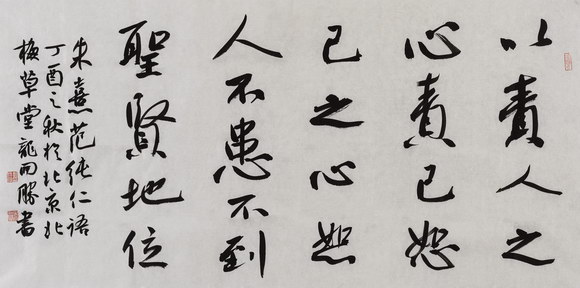 以責人之
心責己恕
己之心恕
人不患不到
聖賢地位
朱熹范純仁語
丁酉之秋於北京北
梅草堂龍開勝書